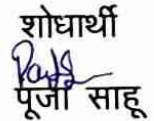 शोधार्थी
पूजा साहू